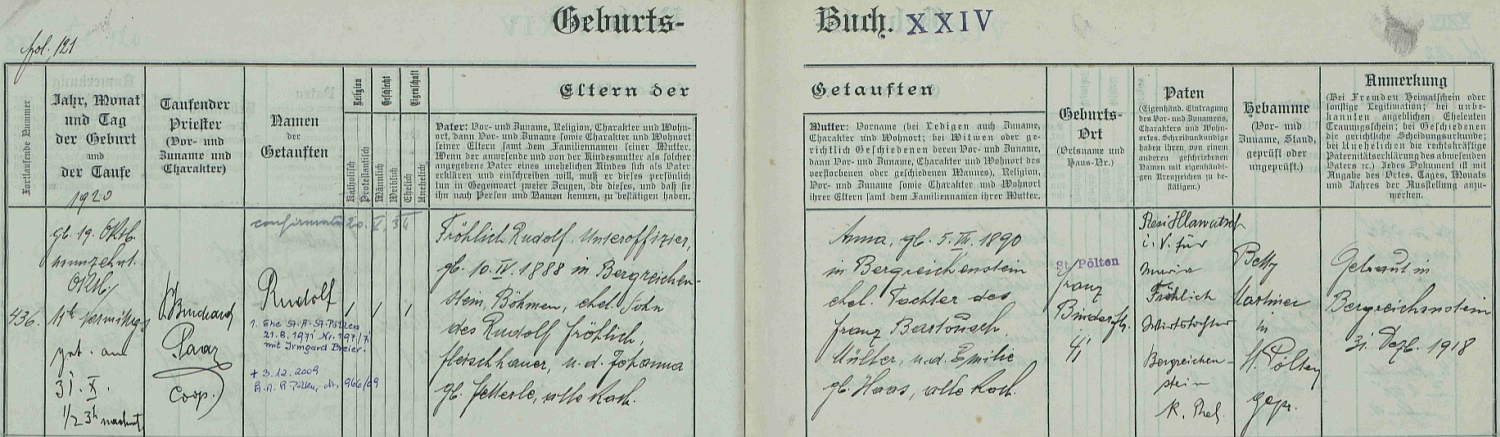 Geburts-
Buch. XXIV
fol. 121
Fortlaufende Nummer
Jahr, Monat
und Tag
der Geburt
und
der Taufe
1920
Taufender
Priester
(Vor- und
Zuname und
Charakter)
Namen
der
Getauften
Religion
Geschlecht
Eigenschaft
Katholisch
Protestantisch
Männlich
Weiblich
Ehelich
Unehelich
Eltern der
Vater: Vor- und Zuname, Religion, Charakter und Wohn-
ort, dann Vor- und Zuname sowie Charakter und Wohnort
seiner Eltern samt dem Familiennamen seiner Mutter.
Wenn der anwesende und von der Kindesmutter als solcher
angegebene Vater eines unehelichen Kindes sich als Vater
erklären und einschreiben will, muß er dieses persönlich
tun in Gegenwart zweier Zeugen, die dieses, und daß sie
ihn nach Person und Namen kennen, zu bestätigen haben.
Getauften
Mutter: Vorname (bei Ledigen auch Zuname,
Charakter und Wohnort; bei Witwen oder ge-
richtlich Geschiedenen deren Vor- und Zuname,
dann Vor- und Zuname, Charakter und Wohnort des
verstorbenen oder geschiedenen Mannes), Religion,
Vor- und Zuname sowie Charakter und Wohnort
ihrer Eltern samt dem Familiennamen ihrer Mutter.
Geburts-
Ort
(Ortsname und
Haus-Nr.)
Paten
(Eigenhänd. Eintragung
des Vor- und Zunamens,
Charakters und Wohn-
ortes. Schreibunkundige
von einem
anderen geschriebenen
Namen mit eigenhändi-
gen Kreuzzeichen zu be-
stätigen.)
Hebamme
(Vor- und
Zuname, Stand,
geprüft oder
ungeprüft.)
Anmerkung
(Bei Fremden Heimatschein oder
sonstige Legitimation; bei unbe-
kannten angeblichen Eheleuten
Trauungsschein; bei Geschiedenen
die gerichtliche Scheidungsurkunde;
bei Unehelichen die rechtskräftige
Paternitätserklärung des abwesenden
Vaters ec.) Jedes Dokument ist mit
Angabe des Ortes, Tages, Monats
und Jahres der Ausstellung anzu-
merken.
436.
gb. 19. Oktb.
neunzehnt.
Oktb,
get. am
31. X.
1/2 3h nachmitt.
Paar
Coop.
Rudolf
1. Ehe St. A. St. Pölten
21.8.1971 Nr. 197/71
mit Irmgard Breier.
+ 3.12.2009
St. A. St. Pölten, Nr. 966/09
Fröhlich Rudolf, Unteroffizier,
gb. 10. IV. 1888 in Bergreichen-
stein, Böhmen, ehel. Sohn
des Rudolf Fröhlich,
Fleischhauer, u. d. Johanna
gb. Fetterle, alle kath.
Anna, gb. 5. III. 1890
in Bergreichenstein
ehel. Tochter des
Franz
Müller, u. d. Emilie
gb. Haas, alle kath.
St. Pölten
Franz
Binderstr.
41
Resi Hlawatsch
i. V. für
Maria
Fröhlich
Bergreichen-
stein
Betty
in
St. Pölten
gepr.
Getraut in
Bergreichenstein
31. Dezb. 1918